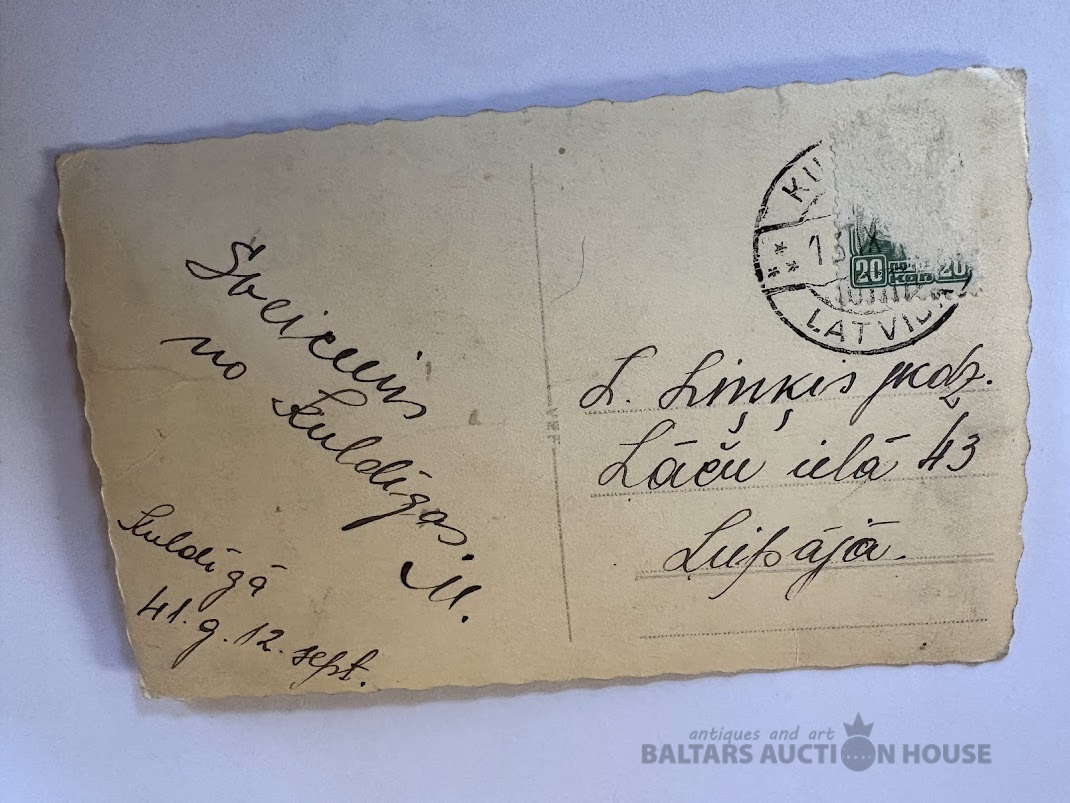 Sveiciens
no Kuldīgas.
M.
Kuldīgā
41. g. 12. sept.
LATVIJA
20 20
L. Liņķis jkdz.
Lāču ielā 43
Liepājā.
antiques and art
BALTARS AUCTION HOUSE